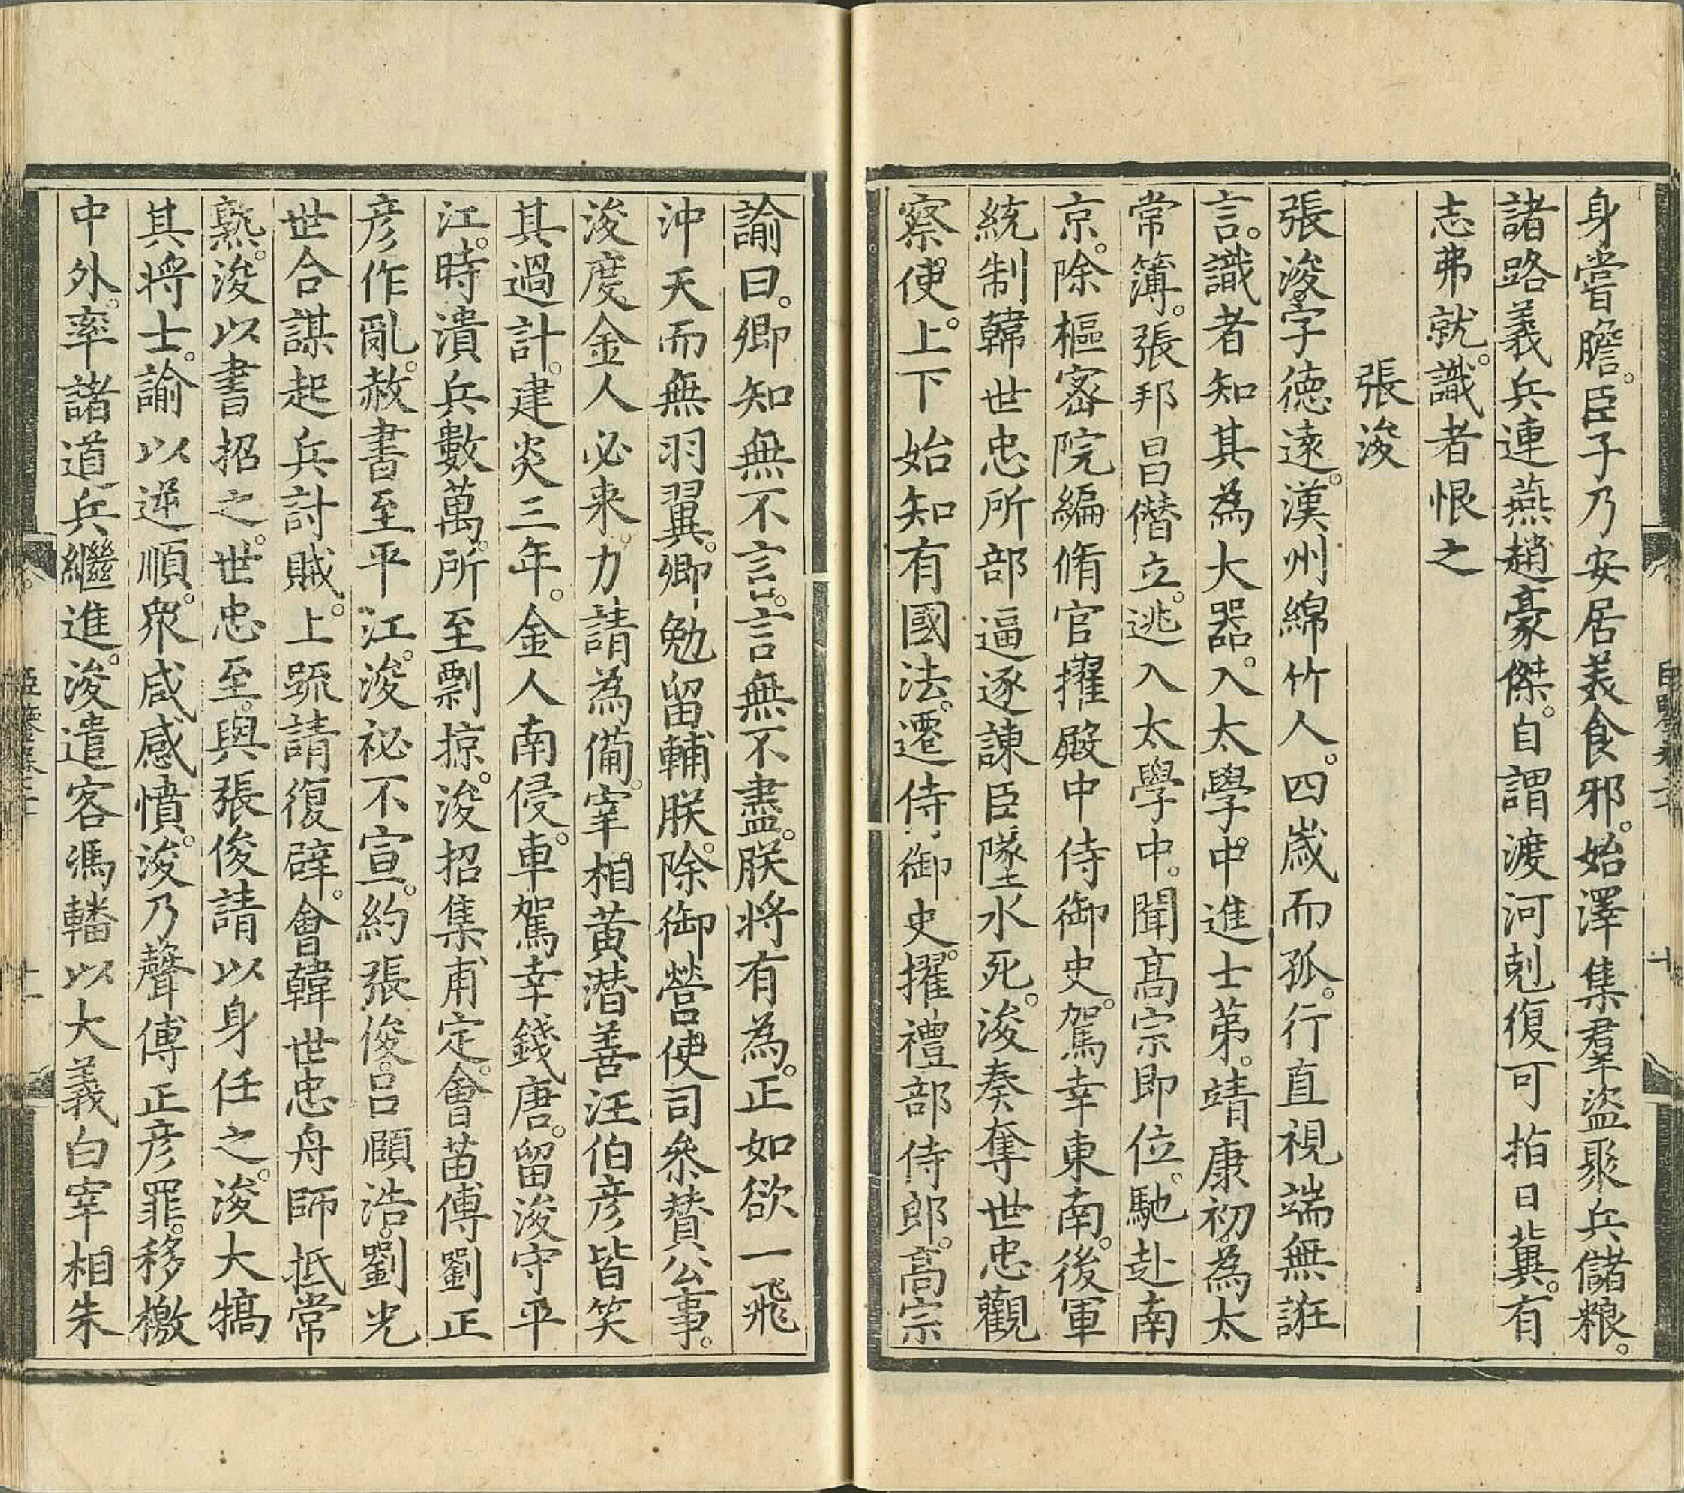 身嘗膽。臣子乃安居美食邪。始澤集羣盜聚兵儲粮。
諸路義兵連燕趙豪傑。自謂渡河剋復可拍日冀。有
志弗就。識者恨之
張浚
張浚。字德遠。漢州綿竹人。四歲而孤。行直視端無誑
言。識者知其為大器。入太學。中進士第。靖康初。為太
常簿。張邦昌僭立。逃入太學中。聞高宗即位。馳赴南
京。除樞密院編脩官擢殿中侍御史。駕幸東南。後軍
統制韓世忠所部逼逐諫臣墜水死。浚奏奪世忠觀
察使。上下始知有國法。遷侍御史。擢禮部侍郎。高宗
諭曰。卿知無不言。言無不盡。朕將有為。正如欲一飛
沖天而無羽翼。卿勉留輔朕。除御營使司叅贊公事。
浚度金人必来力請為備。宰相黃潛善汪伯彥皆笑
其過計。建炎三年。金人南侵。車駕幸錢唐。留浚守平
江。時潰兵數萬。所至剽掠。浚招集甫定。會苗傅劉正
彥作亂。赦書至平江。浚祕不宣。約張俊。呂頤浩。劉光
世合謀起兵討賊。上疏請復辟。會韓世忠舟師抵常
熟。浚以書招之。世忠至。與張俊請以身任之。浚大犒
其將士。諭以逆順。衆咸感憤。浚乃聲傅正彥罪。移檄
中外。率諸道兵繼進。浚遣客馮轓以大義白宰相朱